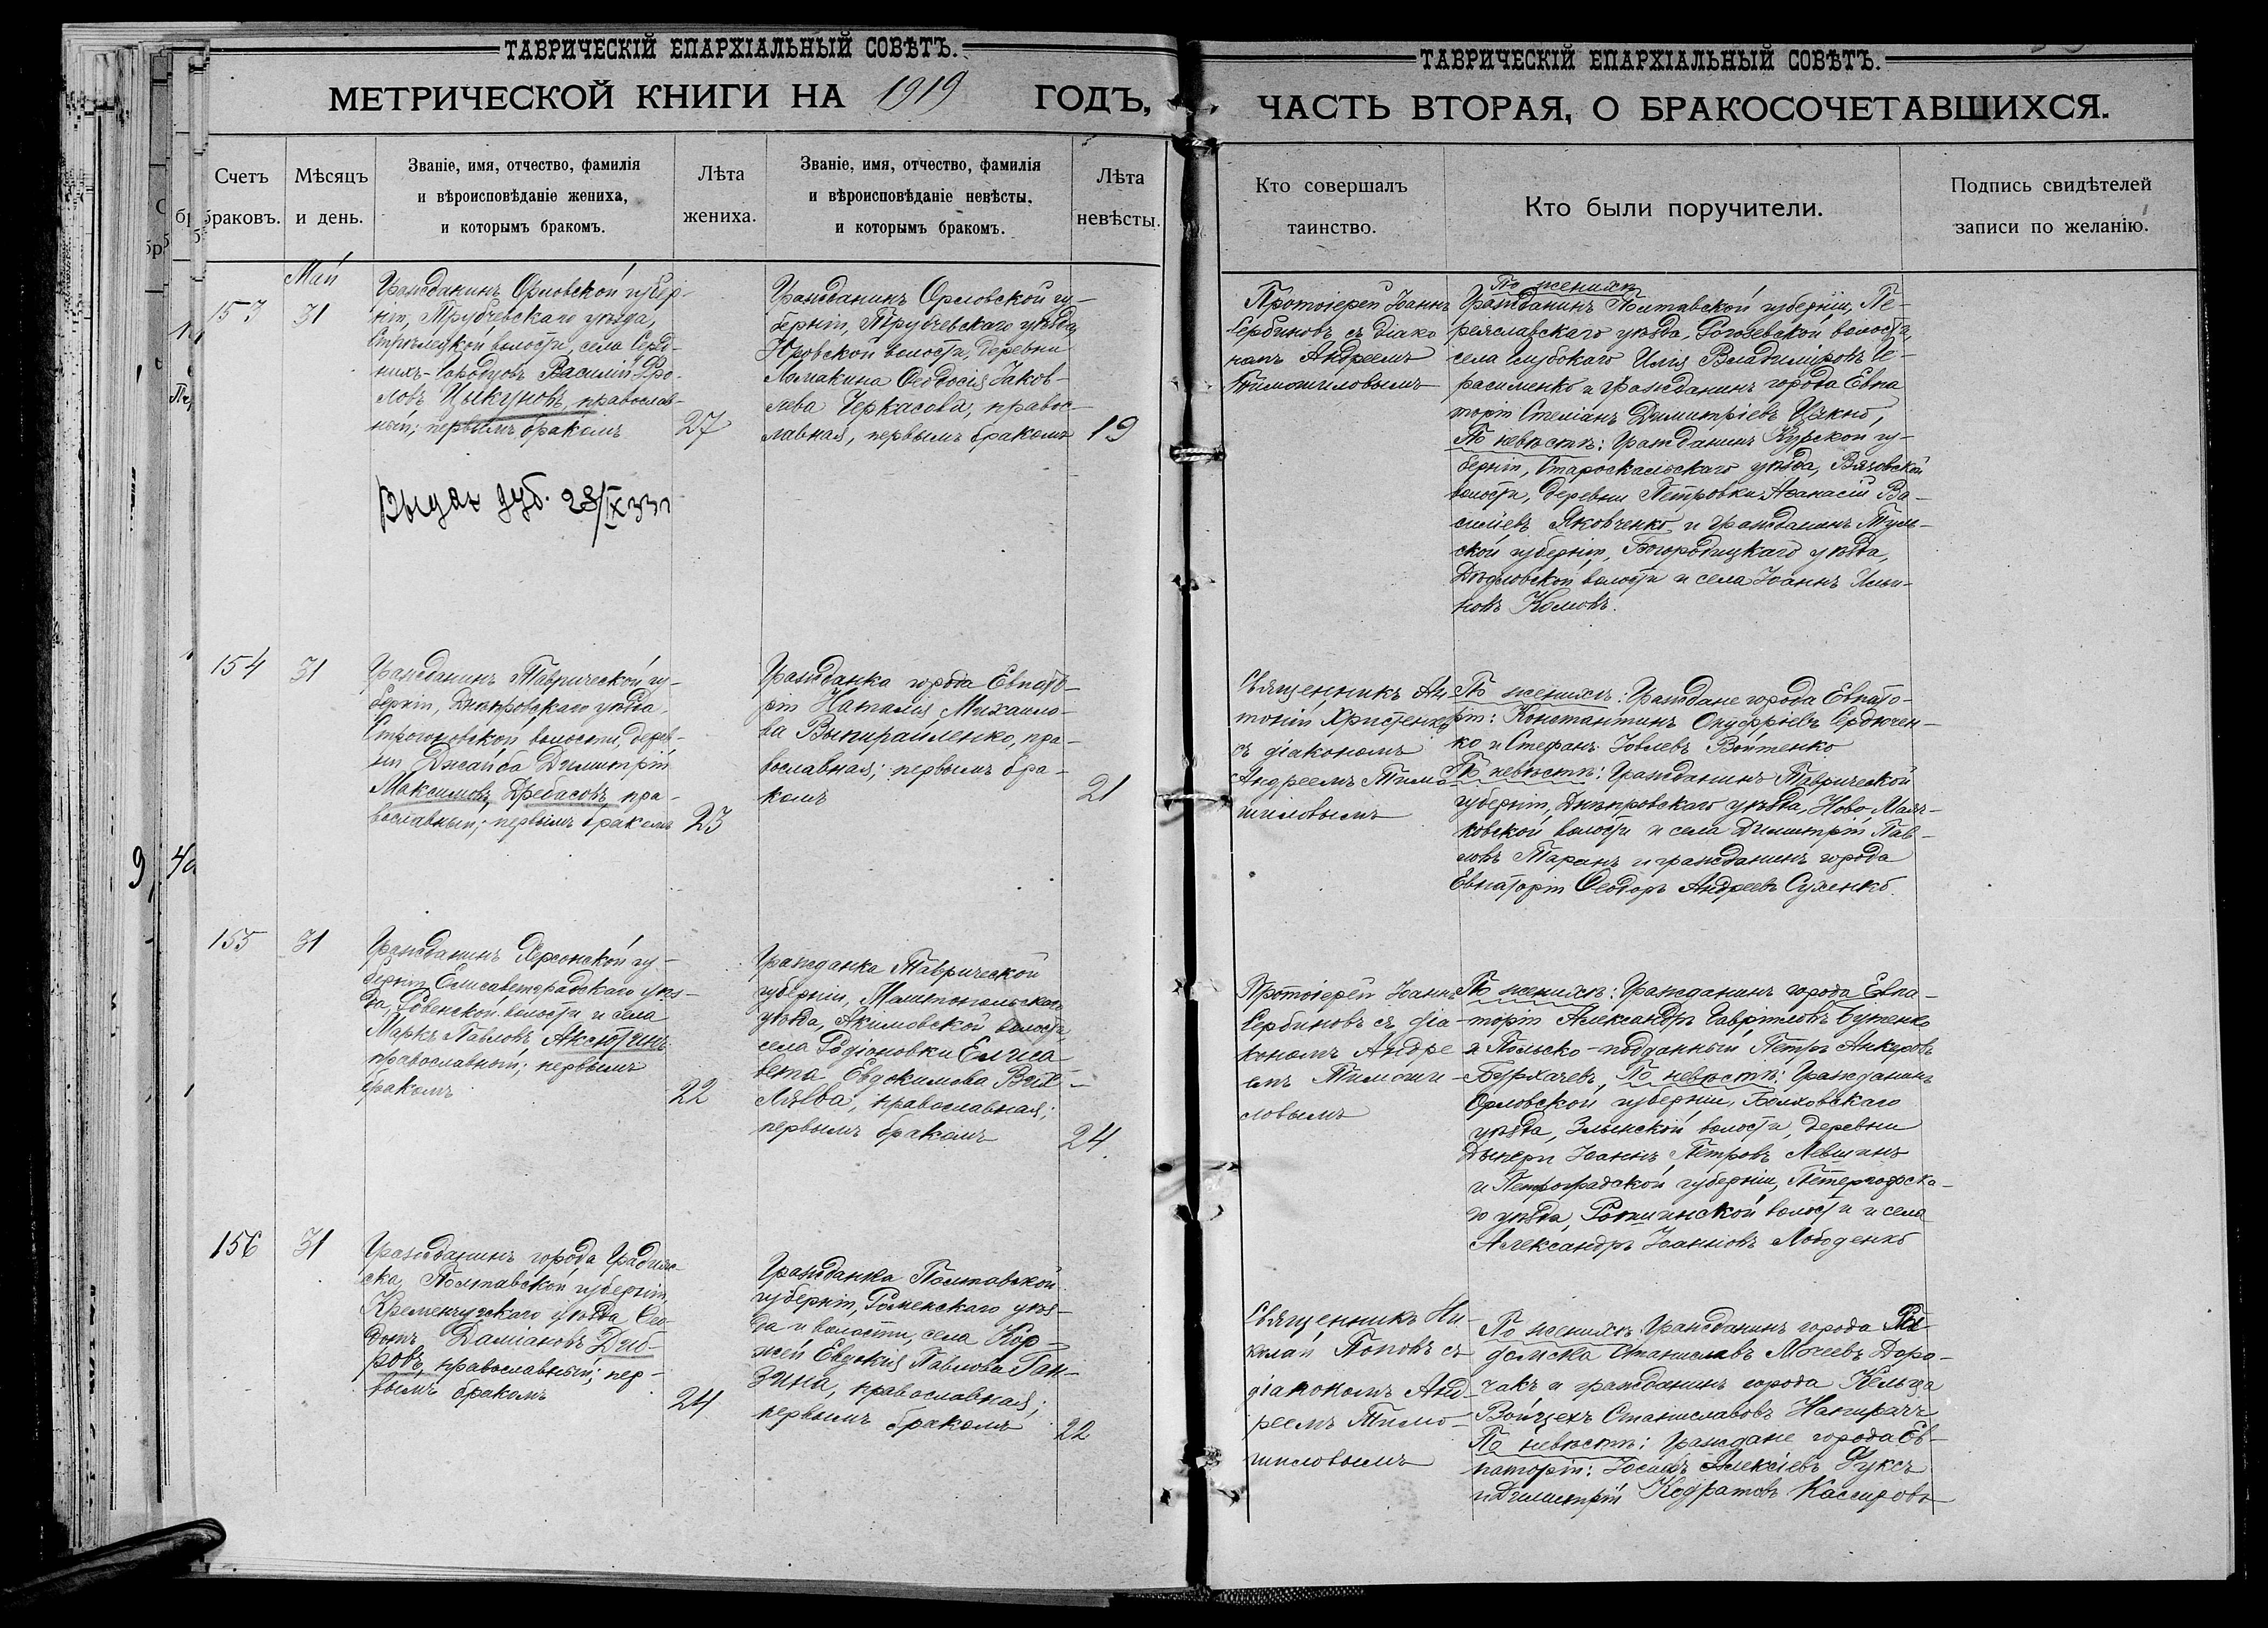 ТАВРИЧЕСКІЙ ЕПАРХІАЛЬНЫЙ СОВѢТЪ.
МЕТРИЧЕСКОЙ КНИГИ НА 1919 ГОДЪ,
Счетъ
браковъ.
Мѣсяцъ
и день.
Званіе, имя, отчество, фамилія
и вѣроисповѣданіе жениха,
и которымъ бракомъ.
Лѣта
жениха.
Званіе, имя, отчество, фамилія
и вѣроисповѣданіе невѣсты,
и которымъ бракомъ.
Лѣта
невѣсты.
Май
153
31
Гражданинъ Орловской губер-
ніи, Трубчевскаго уѣзда,
Стрѣлецкой волости, села
Василій Фро-
ловъ Цыкуновъ, православ-
ный; первымъ бракомъ
27
Гражданинъ Орловской гу-
берніи, Трубчевскаго уѣзда,
Юровской волости, деревни
Ломакина Ѳеодосія Іаков-
лева Черкасова, правос-
лавная, первымъ бракомъ
19
28/IX 33
154
31
Гражданинъ Таврической гу-
берніи, Днѣпровскаго уѣзда,
Строгоновской волости, дерев-
ни Джайба Димитрій
Максимовъ Дребасовъ, пра-
вославный; первымъ бракомъ
23
Гражданка города Евпато-
ріи Наталія Михаило-
ва Выпирайленко, пра-
вославная; первымъ бра-
комъ
21
155
31
Гражданинъ Херсонской гу-
берніи, Елисаветградскаго уѣз-
да, Ровенской волости и села
Маркъ Павловъ Аксютинъ
православный; первымъ
бракомъ
22
Гражданка Таврической
губерніи, Мелитопольскаго
уѣзда, Акимовской волости,
села Родіоновки Елиса-
вета Евдокимова
православная;
первымъ бракомъ
24.
156
31
Гражданинъ города Градиж-
ска, Полтавской губерніи,
Кременчугскаго уѣзда Ѳео-
дотъ Даміановъ Диб-
ровъ, православный; пер-
вымъ бракомъ
24
Гражданка Полтавской
губерніи, Роменскаго уѣз-
да и волости, села Кор-
жей Евдокія Павлова Ган-
зина, православная;
первымъ бракомъ
22
ТАВРИЧЕСКІЙ ЕПАРХІАЛЬНЫЙ СОВѢТЪ.
ЧАСТЬ ВТОРАЯ, О БРАКОСОЧЕТАВШИХСЯ.
Кто совершалъ
таинство.
Кто были поручители.
Подпись свидѣтелей
записи по желанію.
Протоіерей Іоаннъ
Сербиновъ съ діако
номъ Андреемъ
Тимошиловымъ
По женихѣ
Гражданинъ Полтавской губерніи, Пе-
реяславскаго уѣзда, Рогозевской волости,
села Глубокаго Илія Владиміровъ Ге-
расименко и гражданинъ города Евпа
торіи Стеліанъ Димитріевъ
По невѣстѣ: Гражданинъ Курской гу-
берніи, Старооскольскаго уѣзда, Вязовской
волости, деревни Петровки Аѳанасій Ва-
сильевъ Яковченко и гражданинъ Туль-
ской губерніи, Богородицкаго уѣзда,
Дѣдловской волости и села Іоаннъ Ильи-
новъ Комовъ.
Священникъ Ан-
тоній Христенко
съ діакономъ
Андреемъ Тимо-
шиловымъ
По женихѣ: Граждане города Евпато-
ріи: Константинъ Онуфріевъ Сердючен-
ко и Стефанъ Іовлевъ Войтенко
По невѣстѣ: Гражданинъ Таврической
губерніи, Днѣпровскаго уѣзда, Ново-Маяч-
ковской волости и села Димитрій Пав-
ловъ Таранъ и гражданинъ города
Евпаторіи Ѳеодоръ Андреевъ Сухенко.
Протоіерей Іоаннъ
Сербиновъ съ діа-
кономъ Андре
емъ Тимоши-
ловымъ
По женихѣ: Гражданинъ города Евпа-
торіи Александръ Гавріиловъ Бутенко
и Польско-подданный Петръ
По невѣстѣ: Гражданинъ
Орловской губерніи, Болховскаго
уѣзда, Злынской волости, деревни
Іоаннъ Петровъ Левшинъ
и Петроградской губерніи, Петергофска-
го уѣзда, волости и села
Александръ Іоанновъ Лободенко
Священникъ Ни-
колай Поповъ съ
діакономъ Анд-
реемъ Тимо-
шиловымъ
По женихѣ: Гражданинъ города Ра-
домска Станиславъ Доро-
чакъ и гражданинъ города Кельца
Войцехъ Станиславовъ
По невѣстѣ: Граждане города Ев-
паторіи: Іосифъ Алексіевъ Фуксъ
и Димитрій Кодратовъ Кассировъ